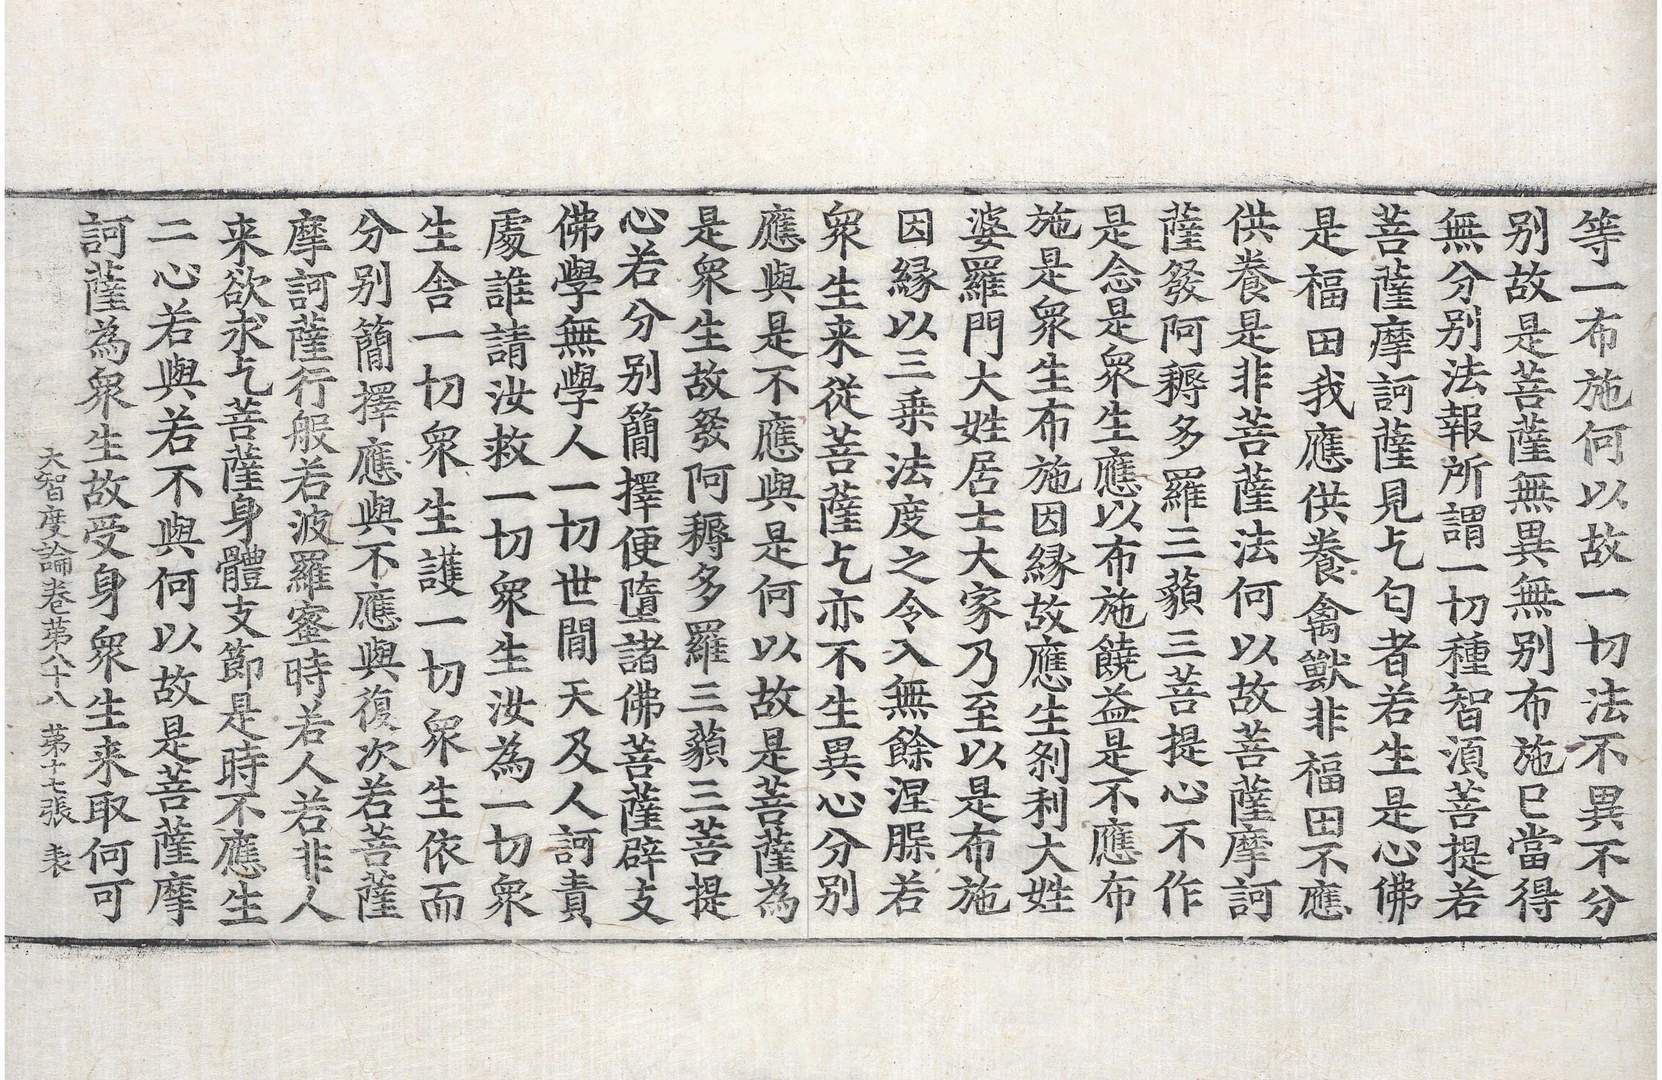 等一布施何以故一切法不異不分
别故是菩薩無異無别布施已當得
無分别法報所謂一切種智湏菩提若
菩薩摩訶薩見乞匃者若生是心佛
是福田我應供養禽獸非福田不應
供養是非菩薩法何以故菩薩摩訶
薩發阿耨多羅三藐三菩提心不作
是念是衆生應以布施饒益是不應布
施是衆生布施因緣故應生刹利大姓
婆羅門大姓居士大家乃至以是布施
因緣以三乗法度之令入無餘涅槃若
衆生来從菩薩乞亦不生異心分别
應與是不應與是何以故是菩薩為
是衆生故發阿耨多羅三藐三菩提
心若分别簡擇便墮諸佛菩薩辟支
佛學無學人一切世間天及人訶責
處誰請汝救一切衆生汝為一切衆
生舎一切衆生護一切衆生依而
分别簡擇應與不應與復次若菩薩
摩訶薩行般若波羅蜜時若人若非人
来欲求乞菩薩身體支節是時不應生
二心若與若不與何以故是菩薩摩
訶薩為衆生故受身衆生来取何可
大智度論卷苐八十八 苐十七張 表